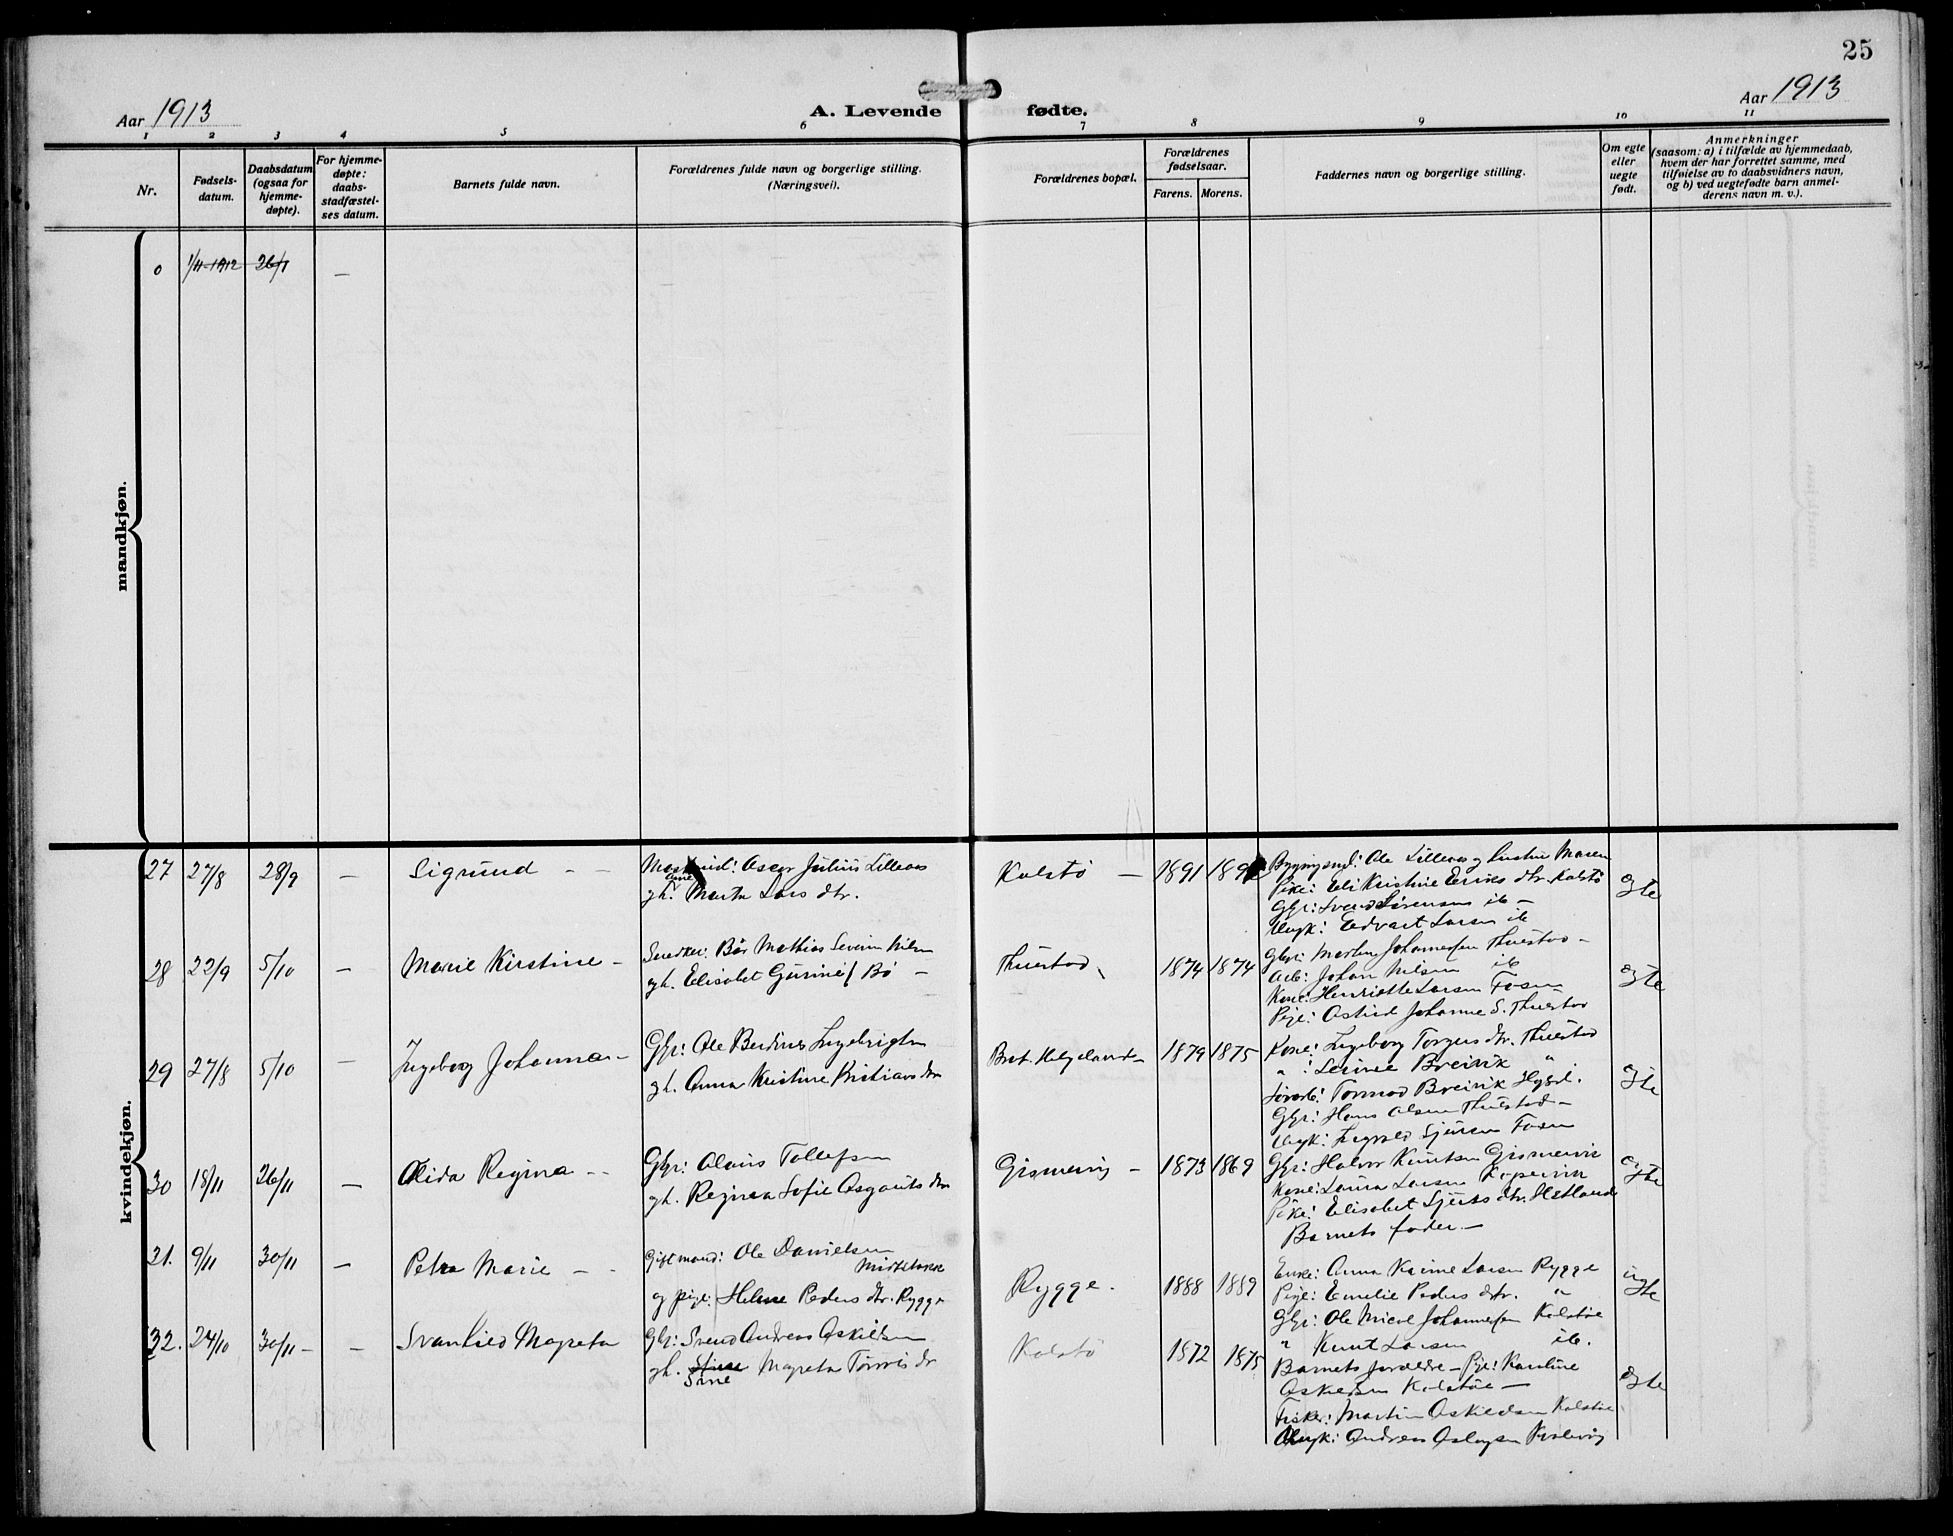 25
Aar 1913
A. Levende fødte.
Aar 1913
1 2 3 4 5 6 7 8 9 10 11
Nr.
Fødsels-
datum.
Daabsdatum
(ogsaa for
hjemme-
døpte).
For hjemme-
døpte:
daabs-
stadfæstel-
ses datum.
Barnets fulde navn.
Forældrenes fulde navn og borgerlige stilling.
(Næringsvei).
Forældrenes bopæl.
Forældrenes
fødselsaar.
Farens. Morens.
Faddernes navn og borgerlige stilling.
Om egte
eller
uegte
født.
Anmerkninger
(saasom: a) i tilfælde av hjemmedaab,
hvem der har forrettet samme, med
tilføielse av to daabsvidners navn,
og b) ved uegtefødte barn anmel-
derens navn m. v.).
mandkjøn.
0 1/11-1912 26/1 —
kvindekjøn.
27 27/8 28/9 — Sigrund - -
Oscar Julius Lilleaas
gh. Marta Lars dtr.
Kolstö — 1891
Ole Lilleaas og hustru Maren
Pike: Eli Kristine Eriks dtr. Kolstö
Gbr: Svend Sörensen ib -
Ungk: Edvart Larsen ib
egte
28 22/9 5/10 — Marie Kirstine -
Snedker: Bår Mathias Severin Nilsen
gh. Elisabet Gurine f Bö -
Thuestad 1874 1874
Gbr: Martin Johannessen Thuestad -
Arb: Johan Nilsen ib
Kone: Henriette Larsen Fosen
Pige: Astrid Johanne S. Thuestad
egte
29 27/8 5/10 — Ingeborg Johanna -
Gbr: Ole Berdines Ingebrigtsen
gh. Anna Kristine Kristians dtr
Bret. Helgeland - 1879 1875
Kone: Ingeborg Torgers dtr. Thuestad
" : Serine Breivik "
Tormod Breivik Hgsd.
Gbr: Hans Olsen Thuestad -
Ungk: Sjursen Fosen
egte
30 18/11 26/11 — Alida Regina - -
Gbr: Olaus Tollefsen
gh. Regina Sofie Asgauts dtr
Gismervig - 1873 1869
Gbr: Halvor Knutsen Gismervik
Kone: Laura Larsen Kopervik
Pike: Elisabet Sjurs dtr. Hetland
Barnets fader. -
egte
31. 9/11 30/11 — Petra Marie - -
Gift mand: Ole Danielsen
og pige: Helene Peders dtr. Rygge
Rygge. 1888 1889
Enke: Anna Karine Larsen Rygge
Pige: Emelie Peders dtr. "
Gbr: Ole Micael Johannessen Kolstöe
" Knut Larsen ib.
uegte
32. 24/10 30/11 - — Svanhild Magreta
Gbr: Svend Andreas Askildsen
gh. Stine Sine Magreta Tórris dr
Kolstö 1872 1875
Barnets forældre - Pige: Karoline
Askildsen Kolstöe —
Fisker: Martin Askildsen Kolstöe
Ungk: Andreas Aslagsen
egte